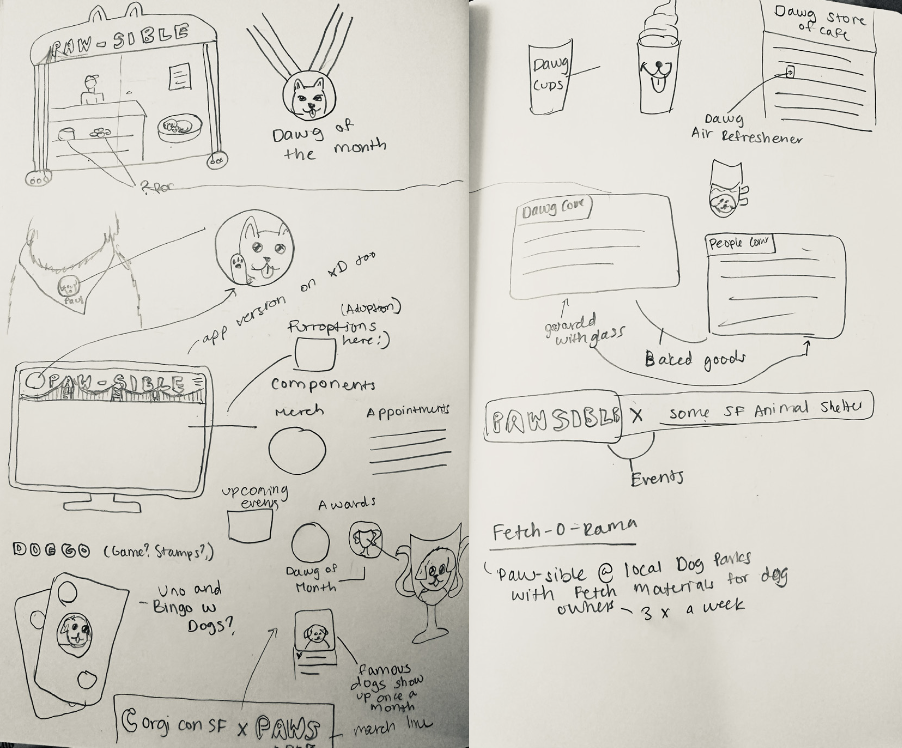 PAW-SIBLE
Dawg of
the month
Pawf
app version on XD too
(Adoption)
Furroptions
here:)
PAW-SIBLE
Components
Merch
Appointments
upcoming
events
Awards
Dawg of
Month
DOGGO (Game? Stamps?,)
Uno and
Bingo w
Dogs?
Famous
dogs show
up once a
month
Corgi con SF x PAWS
merch line
Dawg
cups
Dawg store
of cafe
Dawg
Air Refreshener
Dawg
People
guarded
with glass
Baked goods
PAWSIBLE x some SF Animal Shelter
Events
Fetch-O-Rama
Paw-sible @ local Dog Parks
with Fetch materials for dog
owners - 3 x a week